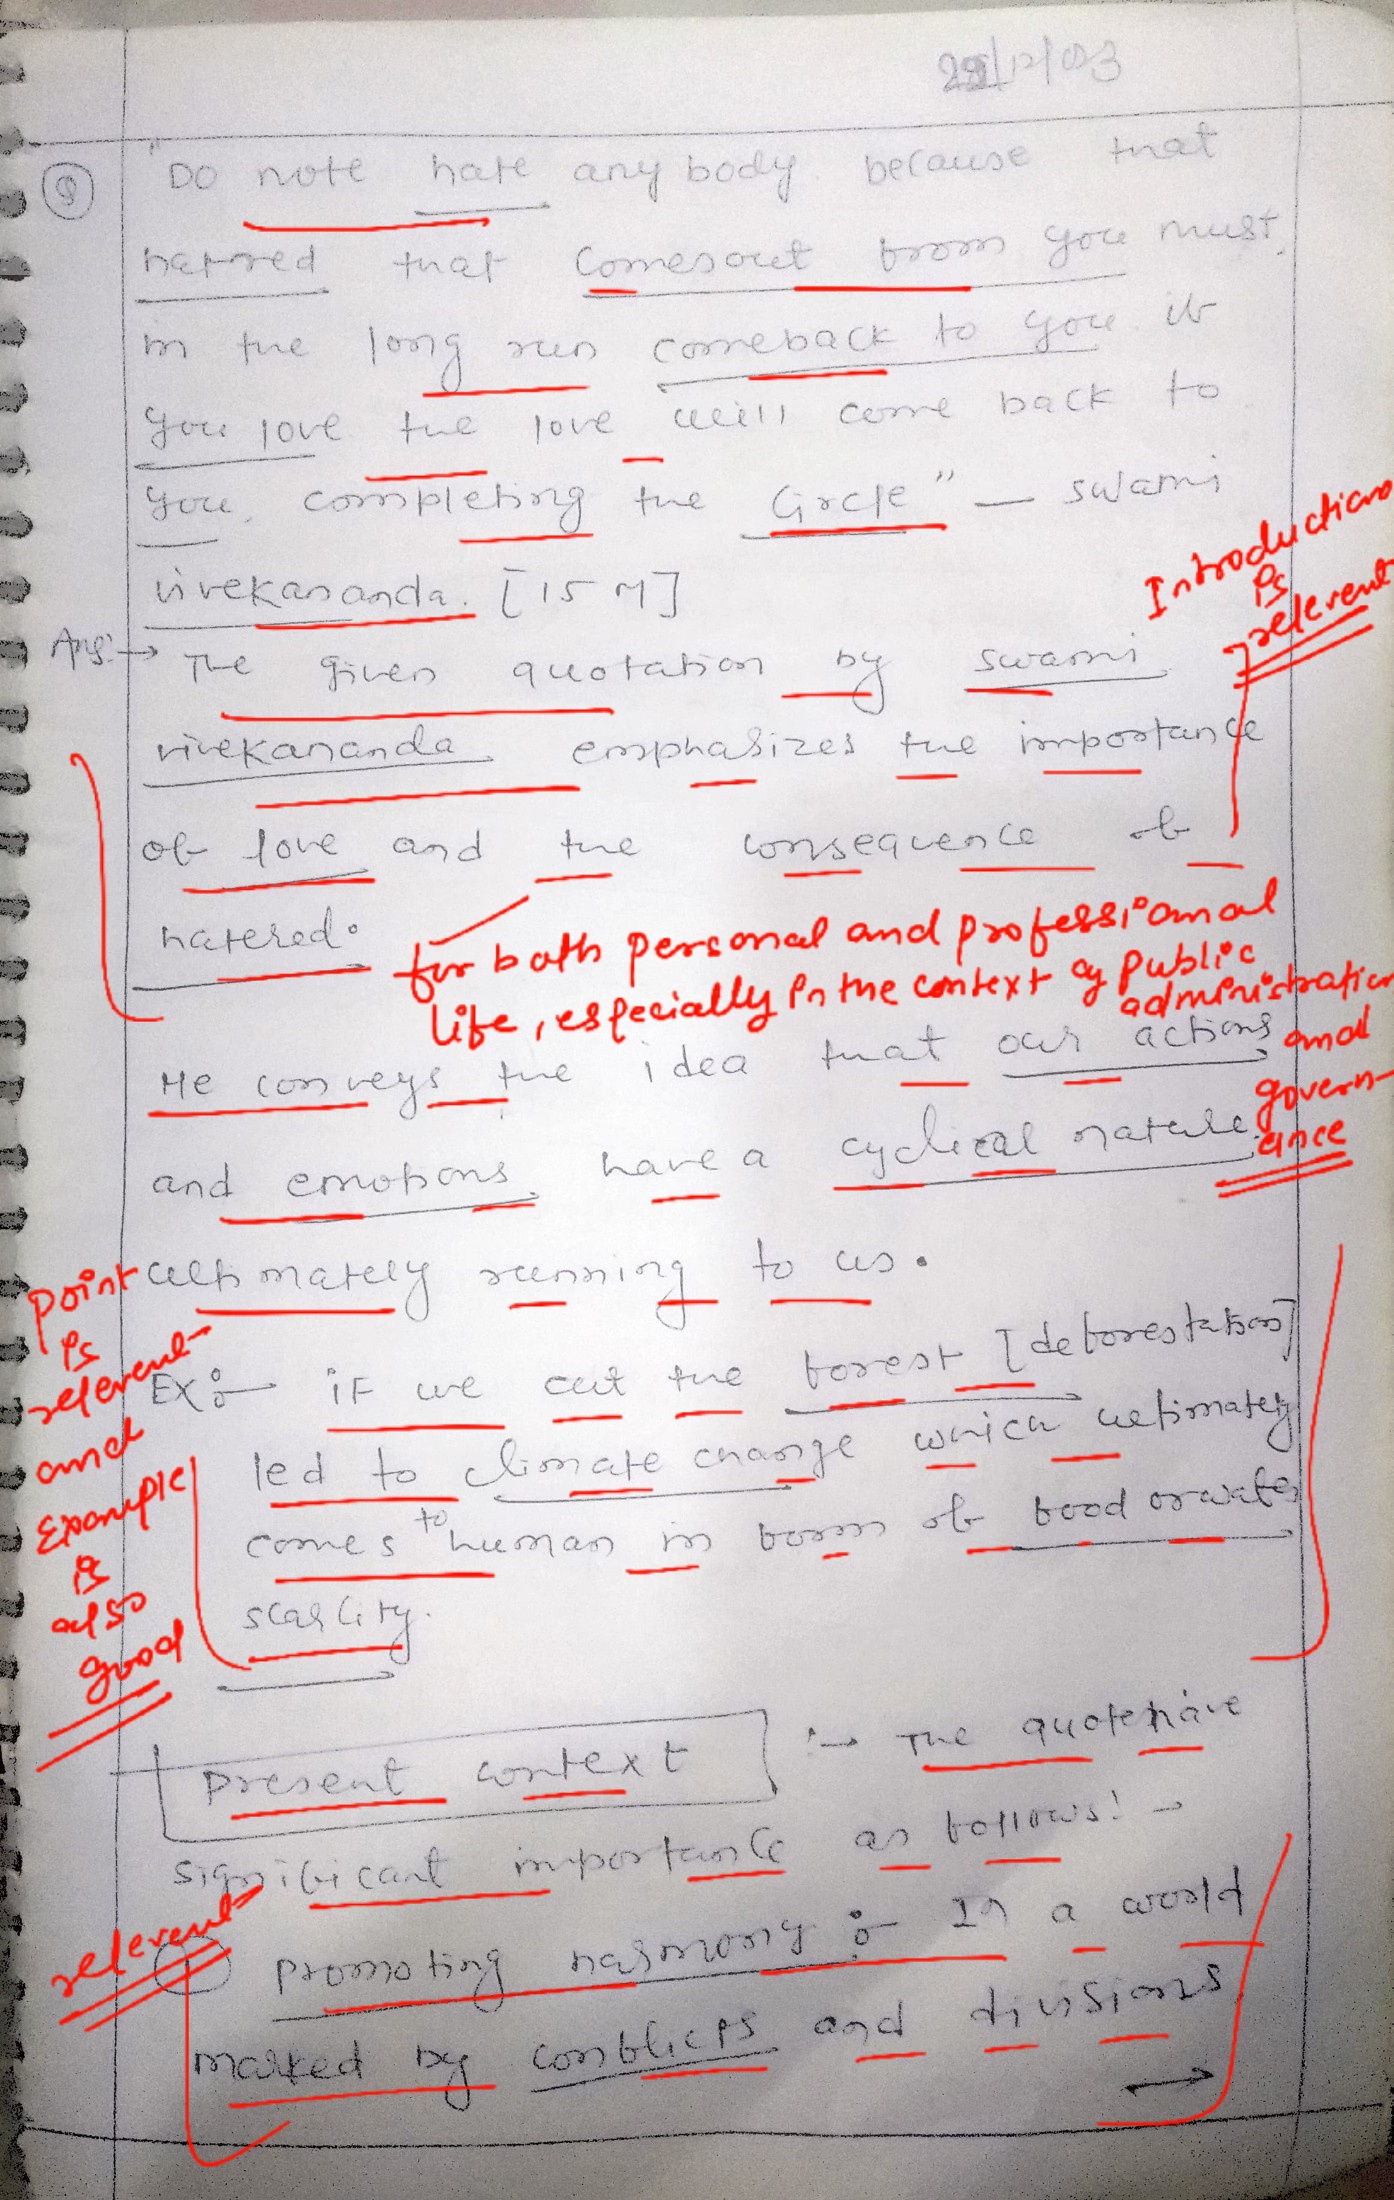 /12/03
"Do note hate any body because that
hatored that comesout from you must,
in the long run comeback to you. if
you love the love will come back to
you, completing the Circle" — swami
vivekananda. [15 M]
Introduction
is
relevent
Ans:→ The given quotation by swami
vivekananda emphasizes the importance
of love and the consequence of
hatered.
for both personal and professional
life, especially in the context of public
administration
and
govern-
ance
He conveys the idea that our actions
and emotions have a cyclical nature
ultimately running to us.
point
is
relevent
and
Example
is
also
good
Ex:- iF we cut the forest [deforestation]
led to climate change which ultimately
comes to human in form of food or water
scarcity.
Present context :→ The quote have
significant importance as follows! →
relevent
① Promoting harmony :- In a world
marked by conflicts and divisions
→